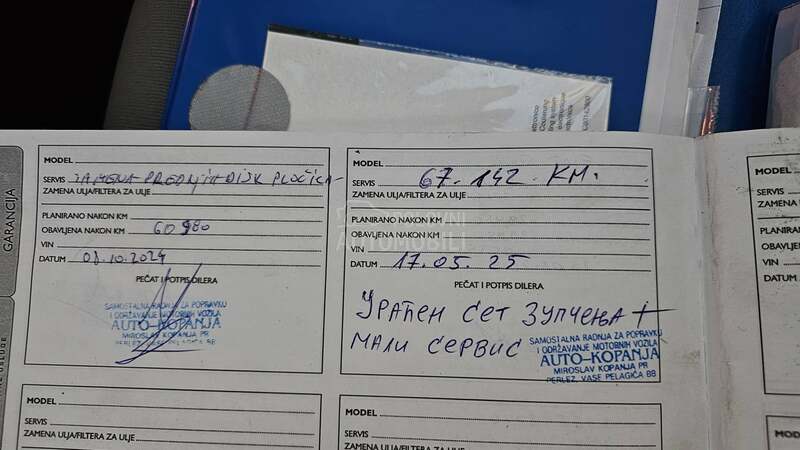 GARANCIJA
MODEL
SERVIS ZAMENA PREDNJIH DISK PLOČICA
ZAMENA ULJA/FILTERA ZA ULJE
PLANIRANO NAKON KM
OBAVLJENA NAKON KM 60980
VIN
DATUM 08.10.2024
PEČAT I POTPIS DILERA
SAMOSTALNA RADNJA ZA POPRAVKU
I ODRŽAVANJE MOTORNIH VOZILA
AUTO-KOPANJA
MIROSLAV KOPANJA PR
PERLEZ, VASE PELAGIĆA 88
MODEL
SERVIS 67.142 KM.
ZAMENA ULJA/FILTERA ZA ULJE
PLANIRANO NAKON KM
OBAVLJENA NAKON KM
VIN
DATUM 17.05.25
PEČAT I POTPIS DILERA
УРАЂЕН СЕТ ЗУПЧЕЊА +
МАЛИ СЕРВИС
SAMOSTALNA RADNJA ZA POPRAVKU
I ODRŽAVANJE MOTORNIH VOZILA
AUTO-KOPANJA
MIROSLAV KOPANJA PR
PERLEZ, VASE PELAGIĆA 88
MODEL
ZAMENA
PLANIRA
OBAVLJE
VIN
DATUM
MODEL
SERVIS
ZAMENA ULJA/FILTERA ZA ULJE
MODEL
SERVIS
ZAMENA ULJA/FILTERA ZA ULJE
MOD
AUTOMOBILI